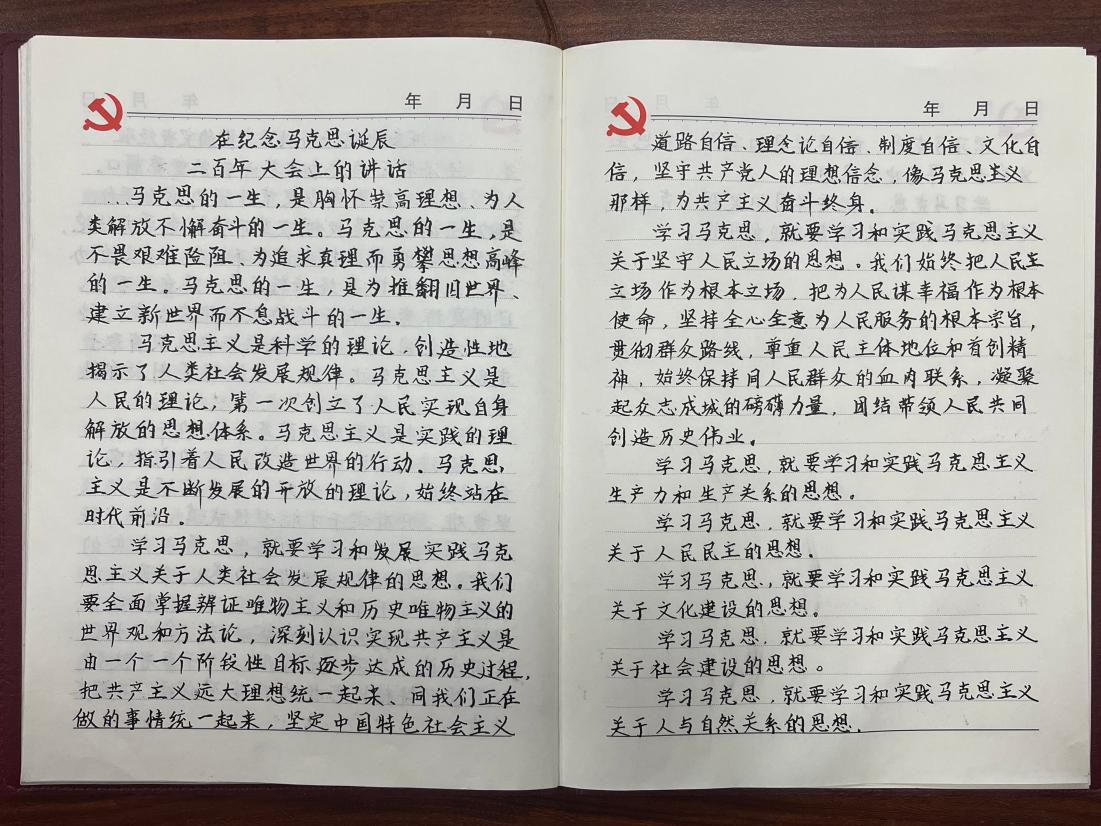 年 月 日
在纪念马克思诞辰
二百年大会上的讲话
马克思的一生，是胸怀崇高理想、为人
类解放不懈奋斗的一生。马克思的一生，是
不畏艰难险阻、为追求真理而勇攀思想高峰
的一生。马克思的一生，是为推翻旧世界、
建立新世界而不息战斗的一生.
马克思主义是科学的理论，创造性地
揭示了人类社会发展规律。马克思主义是
人民的理论，第一次创立了人民实现自身
解放的思想体系。马克思主义是实践的理
论，指引着人民改造世界的行动.马克思
主义是不断发展的开放的理论，始终站在
时代前沿。
学习马克思，就要学习和发展实践马克
思主义关于人类社会发展规律的思想。我们
要全面掌握辨证唯物主义和历史唯物主义的
世界观和方法论，深刻认识实现共产主义是
由一个一个阶段性目标逐步达成的历史过程,
把共产主义远大理想统一起来、同我们正在
做的事情统一起来，坚定中国特色社会主义
年 月 日
道路自信、理念论自信、制度自信、文化自
信，坚守共产党人的理想信念，像马克思主义
那样，为共产主义奋斗终身.
学习马克思，就要学习和实践马克思主义
关于坚守人民立场的思想。我们始终把人民主
立场作为根本立场，把为人民谋幸福作为根本
使命，坚持全心全意为人民服务的根本宗旨，
贯彻群众路线，尊重人民主体地位和首创精
神，始终保持同人民群众的血肉联系，凝聚
起众志成城的磅礴力量，团结带领人民共同
创造历史伟业。
学习马克思，就要学习和实践马克思主义
生产力和生产关系的思想。
学习马克思，就要学习和实践马克思主义
关于人民民主的思想.
学习马克思，就要学习和实践马克思主义
关于文化建设的思想。
学习马克思，就要学习和实践马克思主义
关于社会建设的思想。
学习马克思，就要学习和实践马克思主义
关于人与自然关系的思想.